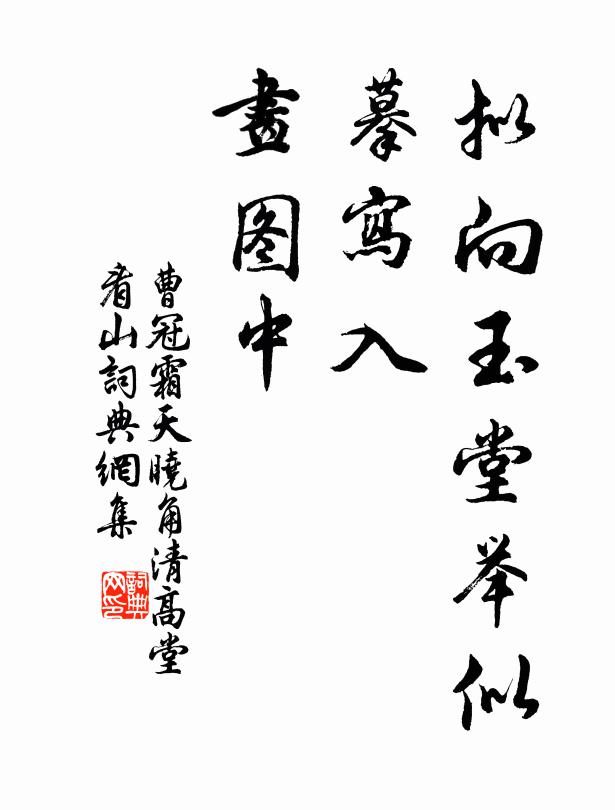 拟向玉堂举似
摹寫入
畫图中
曹冠霜天曉角清高堂
看山詞典網集
詞典
网印